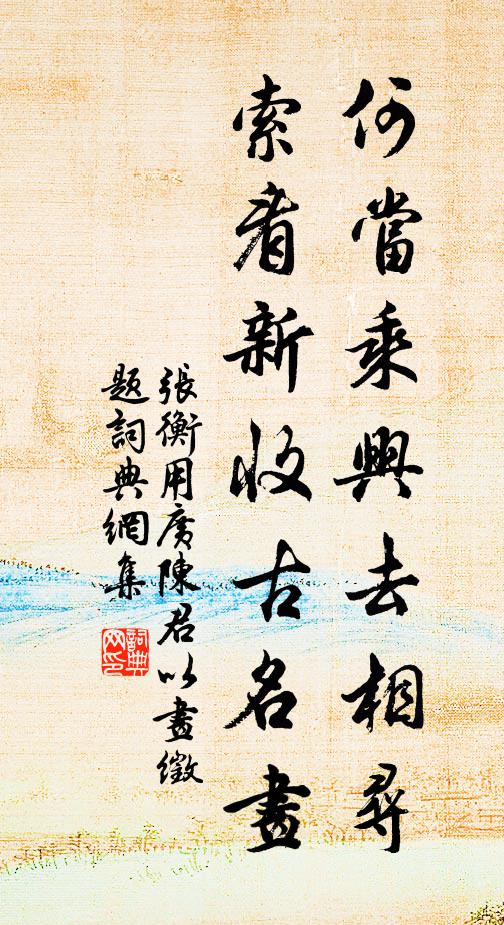 何當乘興去相尋
索看新收古名畫
張衡用廣陳君以畫徵
題詞典網集
詞典
網印